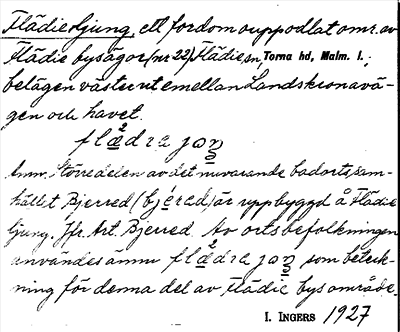 Flädie ljung, ett fordom ouppodlat omr. av
Flädie bys ägor (nr 22) Flädie sn, Torna hd, Malm. l.;
belägen väster ut emellan Landskronavä-
gen och havet.
flädra joŋ
Anm. Större delen av det nuvarande badortssam-
hället Bjerred (bjéred) är uppbyggd å Flädie
ljung. Jfr. Art. Bjerred. Av ortsbefolkningen
användes ännu flädra joŋ som beteck-
ning för denna del av Flädie bys område.
I. INGERS 1927